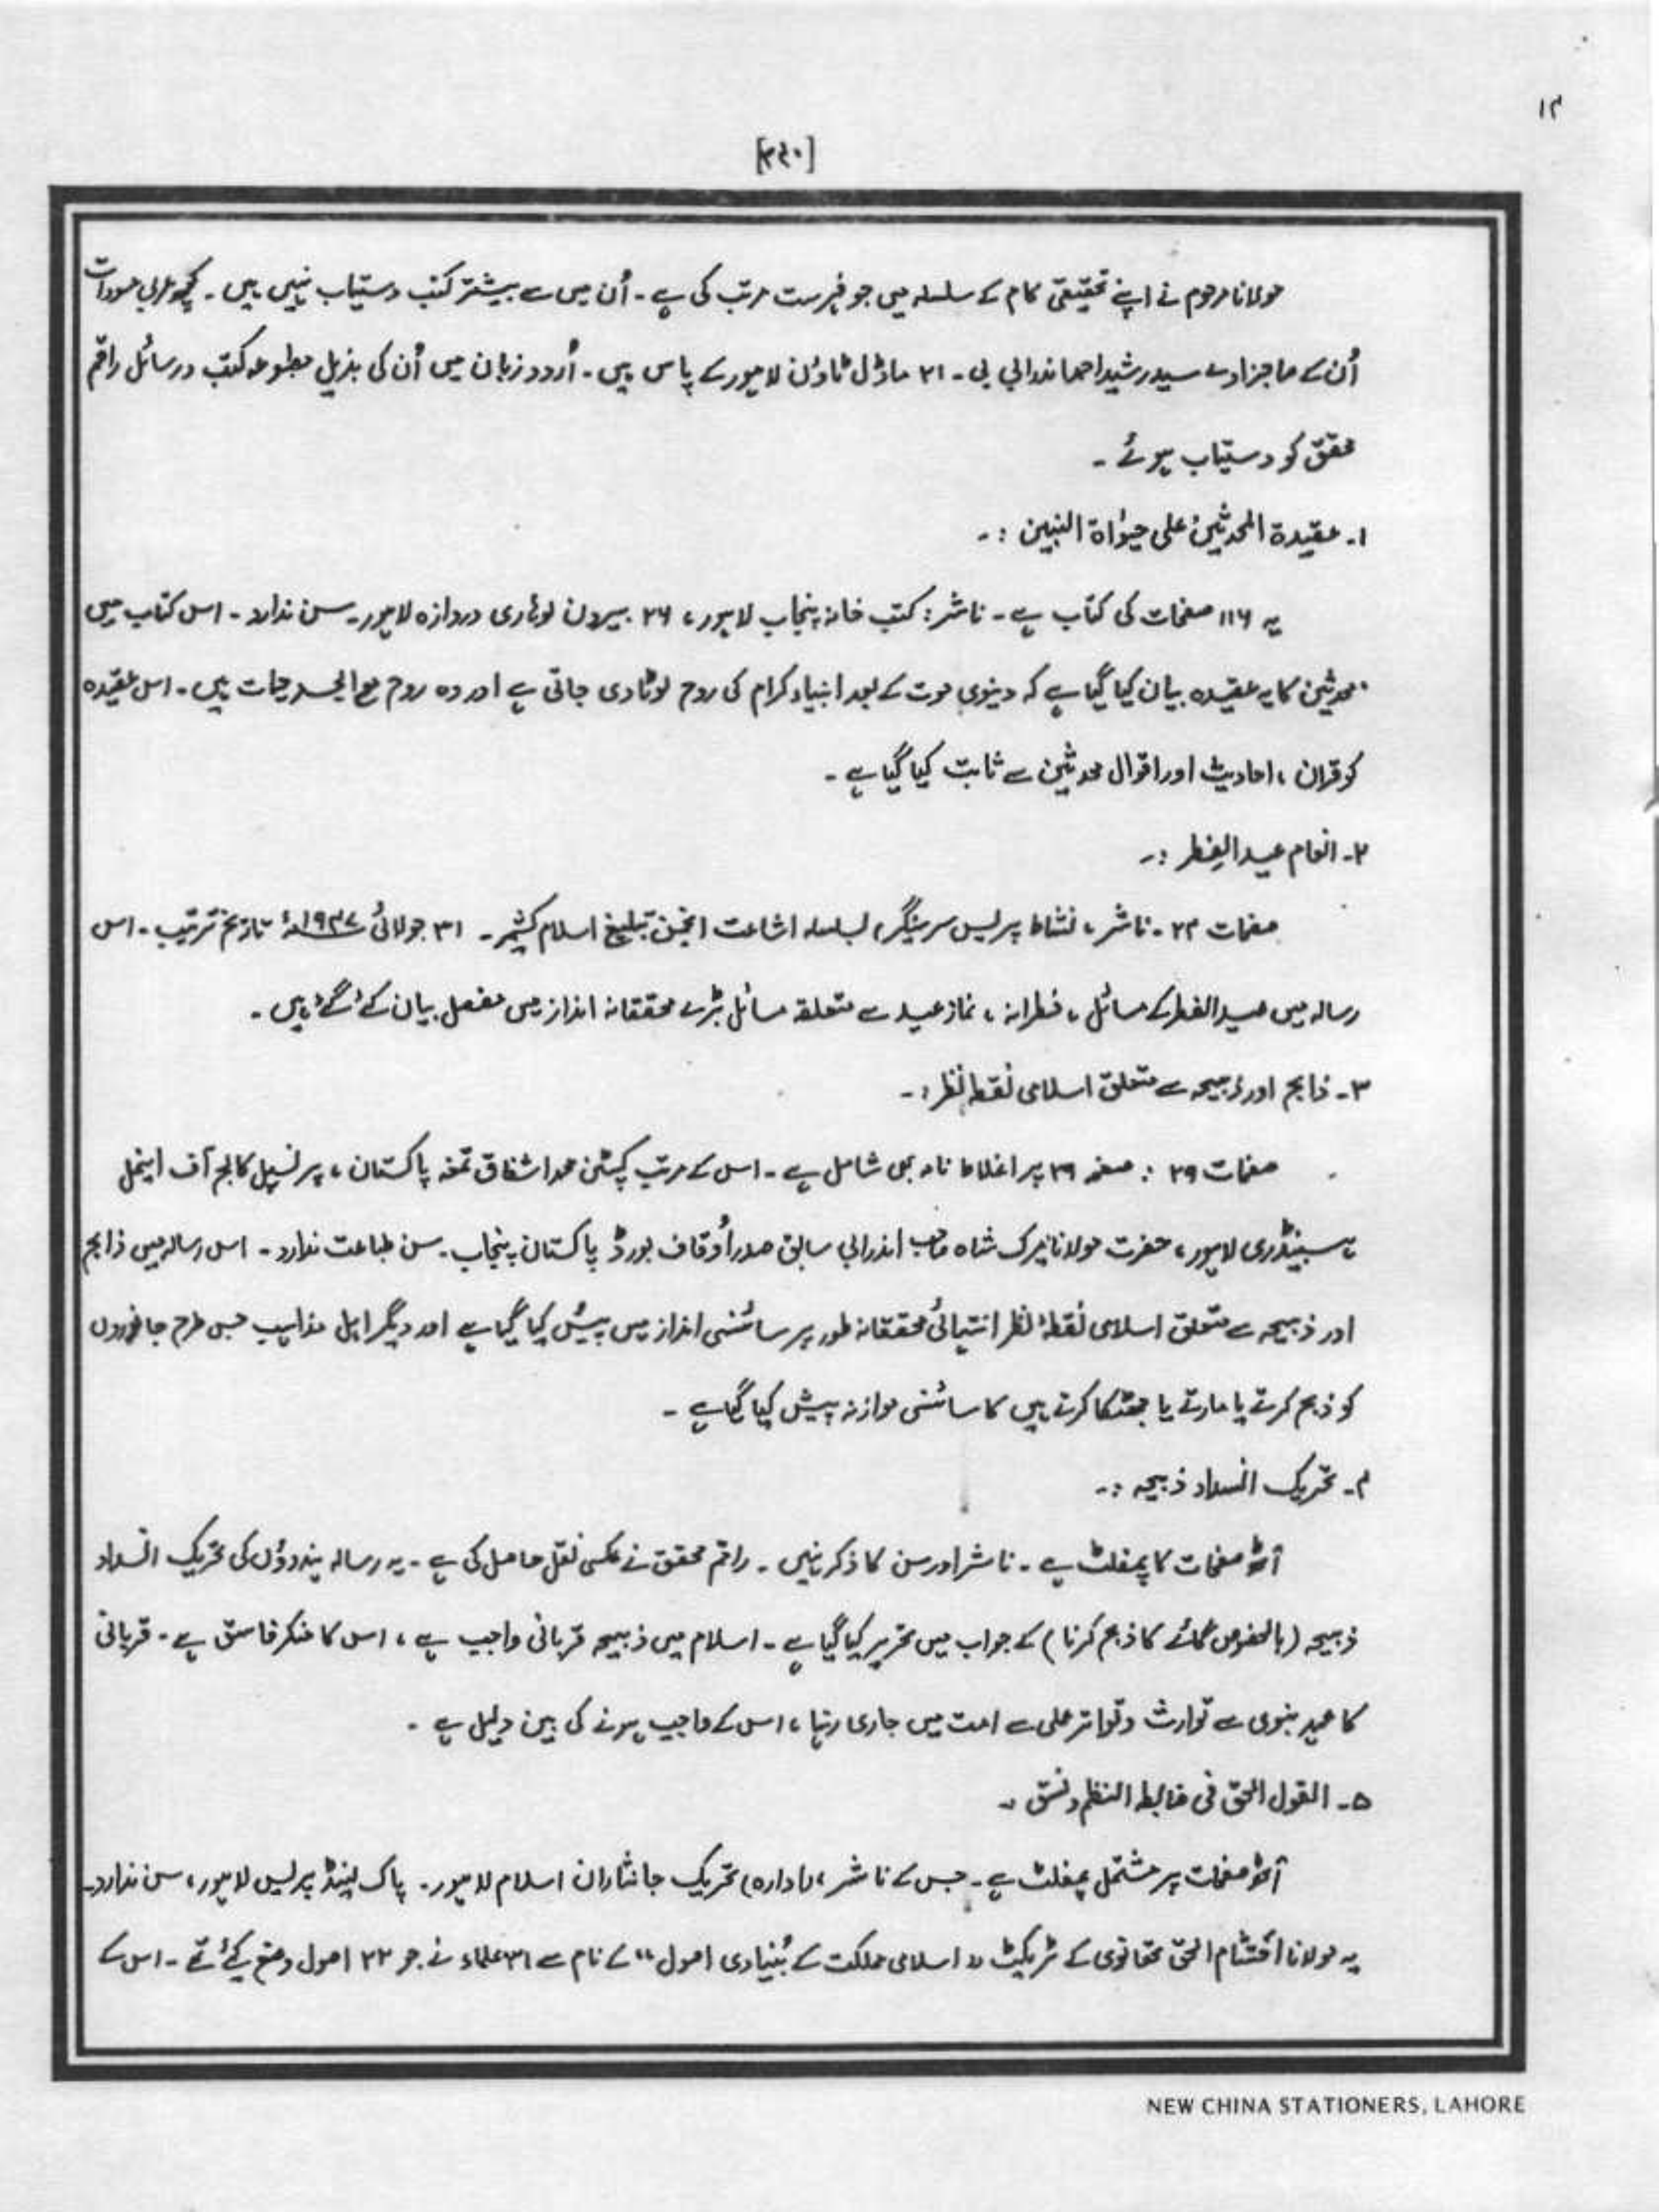 ۱۲
[۳۶۰]
مولانا مرحوم نے اپنے تحقیقی کام کے سلسلہ میں جو فہرست مرتب کی ہے۔ اُن میں سے بیشتر کتب دستیاب نہیں ہیں۔ کچھ عربی مسودات
اُن کے صاجزادے سید رشید احمد اندرابی بی۔ ۲۱ ماڈل ٹاؤن لاہور کے پاس ہیں۔ اُردو زبان میں اُن کی بذیل مطبوعہ کتب و رسائل راقم
محقق کو دستیاب ہوئے۔
۱۔ عقیدۃ المحدثین علی حیوٰاۃ النبین :۔
یہ ۱۱۶ صفحات کی کتاب ہے۔ ناشر: کتب خانہ پنجاب لاہور، ۲۶ بیرون لوہاری دروازہ لاہور۔ سن ندارد۔ اس کتاب میں
محدثین کا یہ عقیدہ بیان کیا گیا ہے کہ دینوی موت کے بعد انبیاء کرام کی روح لوٹا دی جاتی ہے اور وہ روح مع الجسد حیات ہیں۔ اس عقیدہ
کو قران، احادیث اور اقوال محدثین سے ثابت کیا گیا ہے۔
۲۔ انعام عید الفطر :۔
صفحات ۲۴۔ ناشر، نشاط پریس سرینگر، بسلسلہ اشاعت انجمن تبلیغ اسلام کشمیر۔ ۳۱ جولائی ۱۹۴۷ء تاریخ ترتیب۔ اس
رسالہ میں عید الفطر کے مسائل، فطرانہ، نماز عید سے متعلقہ مسائل بڑے محققانہ انداز میں مفصل بیان کئے گئے ہیں۔
۳۔ ذابح اور ذبیحہ سے متعلق اسلامی نقطہ نظر :۔
صفحات ۳۹ : صفحہ ۳۹ پر اغلاط نامہ بھی شامل ہے۔ اس کے مرتب کیپٹن محمد اشفاق تمغہ پاکستان، پرنسپل کالج آف اینمل
ہسبینڈری لاہور، حضرت مولانا میرک شاہ صاحب اندرابی سابق صدر اُوقاف بورڈ پاکستان پنجاب۔ سن طباعت ندارد۔ اس رسالہ میں ذابح
اور ذبیحہ سے متعلق اسلامی نُقطۂ نظر انتہائی محققانہ طور پر سائنسی انداز میں پیش کیا گیا ہے اور دیگر اہل مذاہب جس طرح جانوروں
کو ذبح کرتے یا مارتے یا جھٹکا کرتے ہیں کا سائنسی موازنہ پیش کیا گیا ہے۔
۴۔ تحریک انسداد ذبیحہ :۔
آٹھ صفحات کا پمفلٹ ہے۔ ناشر اور سن کا ذکر نہیں۔ راقم محقق نے عکسی نقل حاصل کی ہے۔ یہ رسالہ ہندوؤں کی تحریک انسداد
ذبیحہ (بالخصوص گائے کا ذبح کرنا) کے جواب میں تحریر کیا گیا ہے۔ اسلام میں ذبیحہ قربانی واجب ہے، اس کا منکر فاسق ہے۔ قربانی
کا عہد نبوی سے توارث و تواتر عملی سے امت میں جاری رہنا، اس کے واجب ہونے کی بین دلیل ہے۔
۵۔ القول الحق فی ضابط النظم و نسق ۔
آٹھ صفحات پر مشتمل پمفلٹ ہے۔ جس کے ناشر، (ادارہ) تحریک جانثاران اسلام لاہور۔ پاک لینڈ پریس لاہور، سن ندارد۔
یہ مولانا احتشام الحق تھانوی کے ٹریکٹ "اسلامی مملکت کے بُنیادی اصول" کے نام سے ۳۱ علماء نے جو ۲۲ اصول وضع کیئے تھے۔ اس کے
NEW CHINA STATIONERS, LAHORE